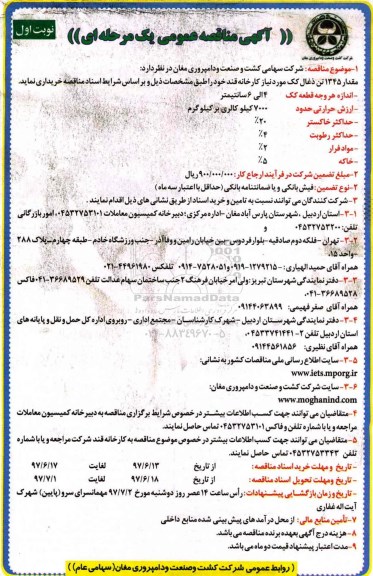 نوبت اول
(( آگهی مناقصه عمومی یک مرحله ای ))
۱-موضوع مناقصه: شرکت سهامی کشت و صنعت و دامپروری مغان در نظر دارد:
مقدار ۱۳۴۵ تن ذغال کک مورد نیاز کارخانه قند خود را طبق مشخصات ذیل و بر اساس شرایط اسناد مناقصه خریداری نماید.
-اندازه هر وجه قطعه کک ۴ الی ۶ سانتیمتر
-ارزش حرارتی حدود ۷۰۰۰ کیلو کالری بر کیلو گرم
-حداکثر خاکستر ۲۰٪
-حداکثر رطوبت ۴٪
-مواد فرار ۲٪
-خاکه ۵٪
۲-مبلغ تضمین شرکت در فرآیند ارجاع کار: ۹۰۰/۰۰۰/۰۰۰ ریال
-نوع تضمین: فیش بانکی و یا ضمانتنامه بانکی (حداقل با اعتبار سه ماه)
۳- شرکت کنندگان می توانند نسبت به تامین و خرید اسناد از طریق نشانی های ذیل اقدام نمایند .
۳-۱- استان اردبیل ،شهرستان پارس آباد مغان -اداره مرکزی؛ دبیرخانه کمیسیون معاملات ۰۴۵۳۲۷۵۳۱۰۱، امور بازرگانی
تلفن: ۰۴۵۳۲۷۵۳۲۰۰ و
۳-۲- تهران -فلکه دوم صادقیه -بلوار فردوس -بین خیابان رامین و وفا آذر -جنب ورزشگاه خادم - طبقه چهارم -پلاک ۲۸۸
-واحد ۱۵.
همراه آقای حمید الهیاری: ۰۹۱۹۰۱۲۷۹۲۱۵-۰۹۱۴۰۷۵۲۸۰۵۱ تلفکس ۴۴۹۶۱۹۸۰-۰۲۱
۳-۳- دفتر نمایندگی شهرستان تبریز: ولی امر خیابان فرهنگ ۲ جنب ساختمان سهام عدالت تلفن ۳۶۶۸۹۵۲۹-۰۴۱ فاکس
۳۶۶۸۹۵۲۸-۰۴۱
همراه آقای صفر فهیمی: ۰۹۱۴۴۰۶۳۸۹۹
۳-۴- دفتر نمایندگی شهرستان اردبیل -شهرک کارشناسان -مجتمع اداری -روبروی اداره کل حمل و نقل و پایانه های
استان اردبیل تلفن ۲-۰۴۵۳۳۷۴۱۴۴۱
همراه آقای نظیری: ۰۹۱۴۴۵۶۱۸۵۶
۳-۵- سایت اطلاع رسانی ملی مناقصات کشور به نشانی:
www.iets.mporg.ir
۳-۶- سایت شرکت کشت و صنعت و دامپروری مغان:
www.moghanind.com
۴- متقاضیان می توانند جهت کسب اطلاعات بیشتر در خصوص شرایط برگزاری مناقصه به دبیرخانه کمیسیون معاملات
مراجعه و یا با شماره تلفن و فاکس ۰۴۵۳۲۷۵۳۱۰۱ تماس حاصل نمایند.
۵- متقاضیان می توانند جهت کسب اطلاعات بیشتر در خصوص موضوع مناقصه به کارخانه قند شرکت مراجعه و یا با شماره
تلفن ۰۴۵۳۲۷۵۳۳۴۳ تماس حاصل نمایند.
- تاریخ و مهلت خرید اسناد مناقصه: از تاریخ ۹۷/۶/۱۳ لغایت ۹۷/۶/۱۷
- تاریخ ومهلت تحویل اسناد مناقصه: از تاریخ ۹۷/۶/۱۸ لغایت ۹۷/۷/۱
- تاریخ وزمان بازگشایی پیشنهادات: رأس ساعت ۱۴ عصر روز دوشنبه مورخ ۹۷/۷/۲ مهمانسرای سرو (پایین) شهرک
آیت اله غفاری
۷- تأمین منابع مالی: از محل درآمد های پیش بینی شده منابع داخلی
۸- هزینه درج آگهی بعهده برنده مناقصه می باشد.
۹- مدت اعتبار پیشنهاد قیمت دو ماه می باشد.
( روابط عمومی شرکت کشت وصنعت ودامپروری مغان (سهامی عام) )